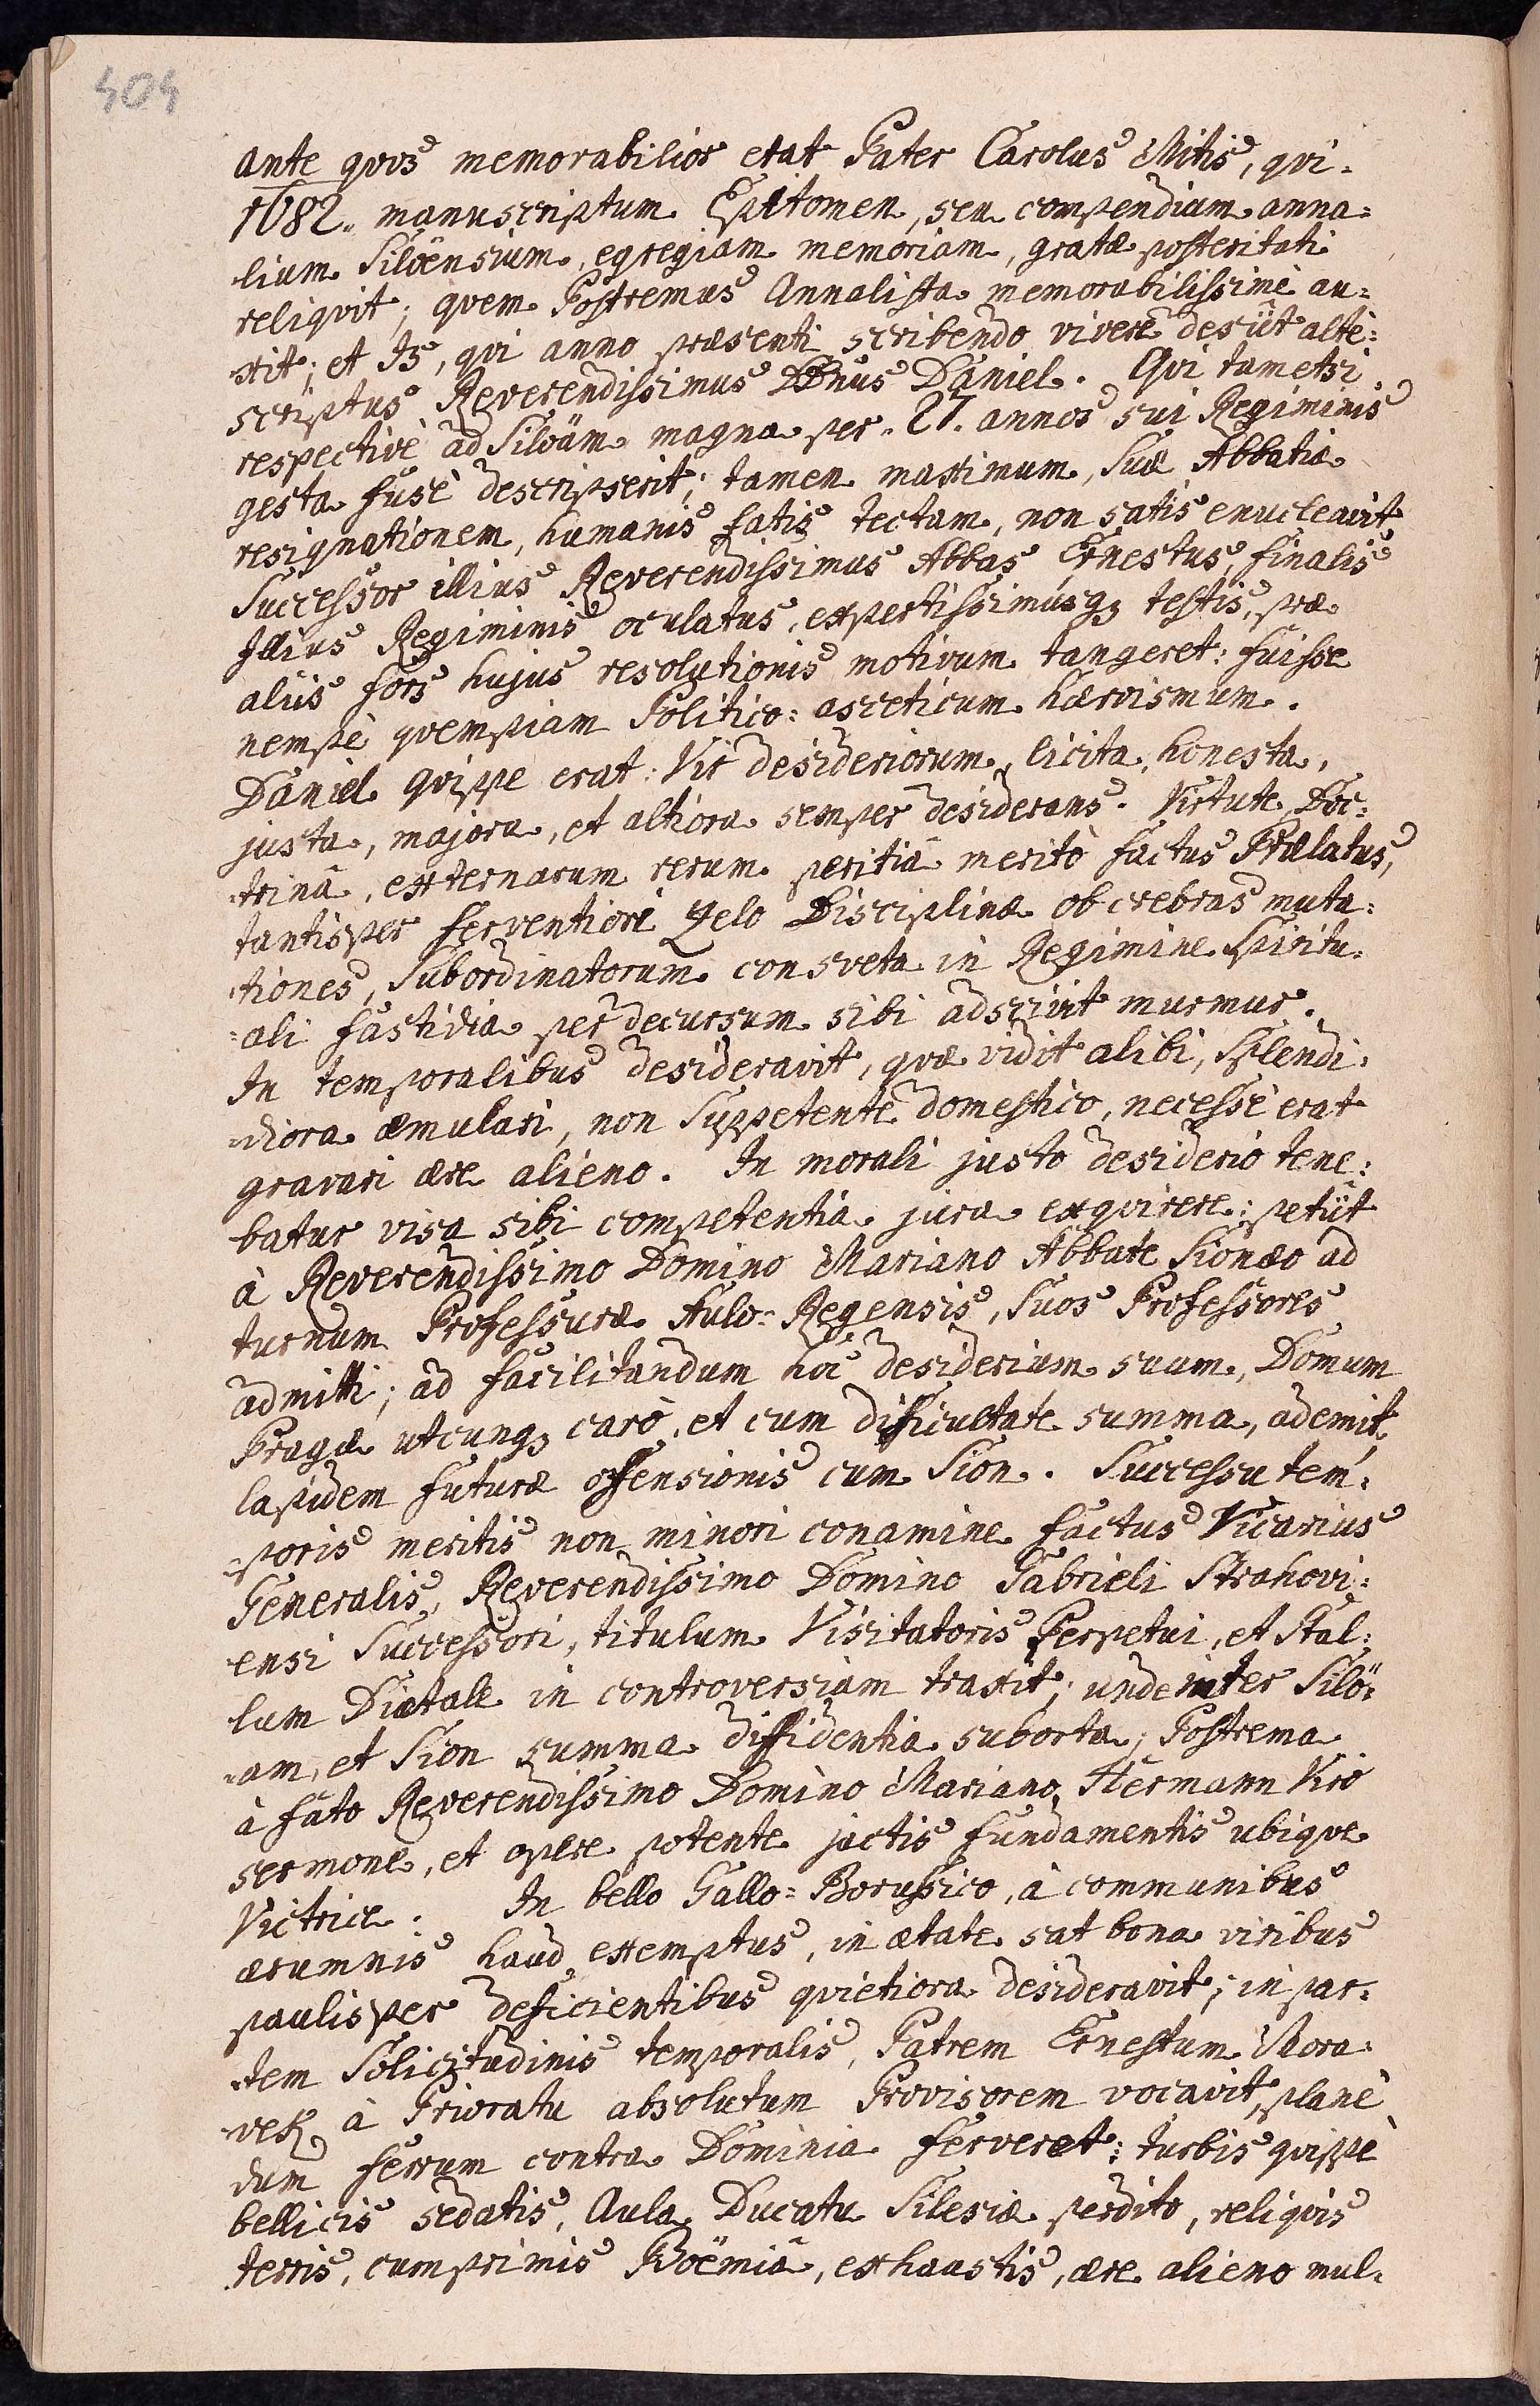 404
ante quos memorabilior erat Pater Carolus Mitis, qui
1682. manuscriptum Epitomen, seu compendium anna=
lium Siloënsium, egregiam memoriam, gratæ posteritati
reliquit; quem Postremus Annalista memorabilissimè au=
xit; et is, qui anno præsenti scribendo vivere desiit alte:
scriptus Reverendissimus DDnus Daniel. Qui tametsi
respectivè ad Siloäm magna per 27. annos sui Regiminis
gesta fusè descripserit; tamen maximum, suæ Abbatiæ
resignationem, humanis fatis tectam, non satis enucleavit
Successor illius Reverendissimus Abbas Ernestus, finalis
Illius Regiminis oculatus, expertissimusq3 testis, præ
aliis fors hujus resolutionis motivum tangeret: fuisse
nempè quempiam Politico=asceticum hæroismum.
Daniel quippe erat Vir desideriorum, licita, honesta,
justa, majora, et altiora semper desiderans. Virtute, Doc=
trinâ, externarum rerum peritiâ meritò factus Prælatus,
tantisper ferventiori Zelo Disciplinæ ob crebras muta=
tiones, Subordinatorum consveta in Regimine Spiritu=
=ali fastidia per decursum sibi adscivit murmur.
In temporalibus desideravit, quæ vidit alibi, Splendi=
diora æmulari, non Suppetente domestico, necesse erat
gravari ære alieno. In morali justo desiderio tene=
batur visa sibi competentia jura exquirere; petiit
à Reverendissimo Domino Mariano Abbate Sionæo ad
turnum Professuræ Aulo=Regensis, Suos Professores
admitti; ad facilitandum hoc desiderium suum, Domum
Pragæ utcunq3 carò, et cum difficultate summa, ademit,
lapidem futuræ offensionis cum Sion. Successu tem=
poris meritis non minori conamine factus Vicarius
Generalis, Reverendissimo Domino Gabrieli Strahovi=
ensi Successori, titulum Visitatoris Perpetui, et Stal=
lum Diætale in controversiam traxit; unde inter Silo=
am, et Sion summa diffidentia suborta; Postrema
à fato Reverendissimo Domino Mariano, Hermann Viro
sermone, et opere potente jactis fundamentis ubique
Victrice. In bello Gallo=Borussico, à communibus
ærumnis haud exemptus, in ætate sat bona viribus
paulisper deficientibus quietiora desideravit; in par=
tem Solicitudinis temporalis, Patrem Ernestum Mora=
vek à Prioratu absolutum Provisorem vocavit, planè
dum ferrum contra Dominia ferveret: turbis quippè
bellicis sedatis, Aula Ducatu Silesiæ perdito, reliquis
terris, cumprimis Boëmiâ, exhaustis, ære alieno mul=